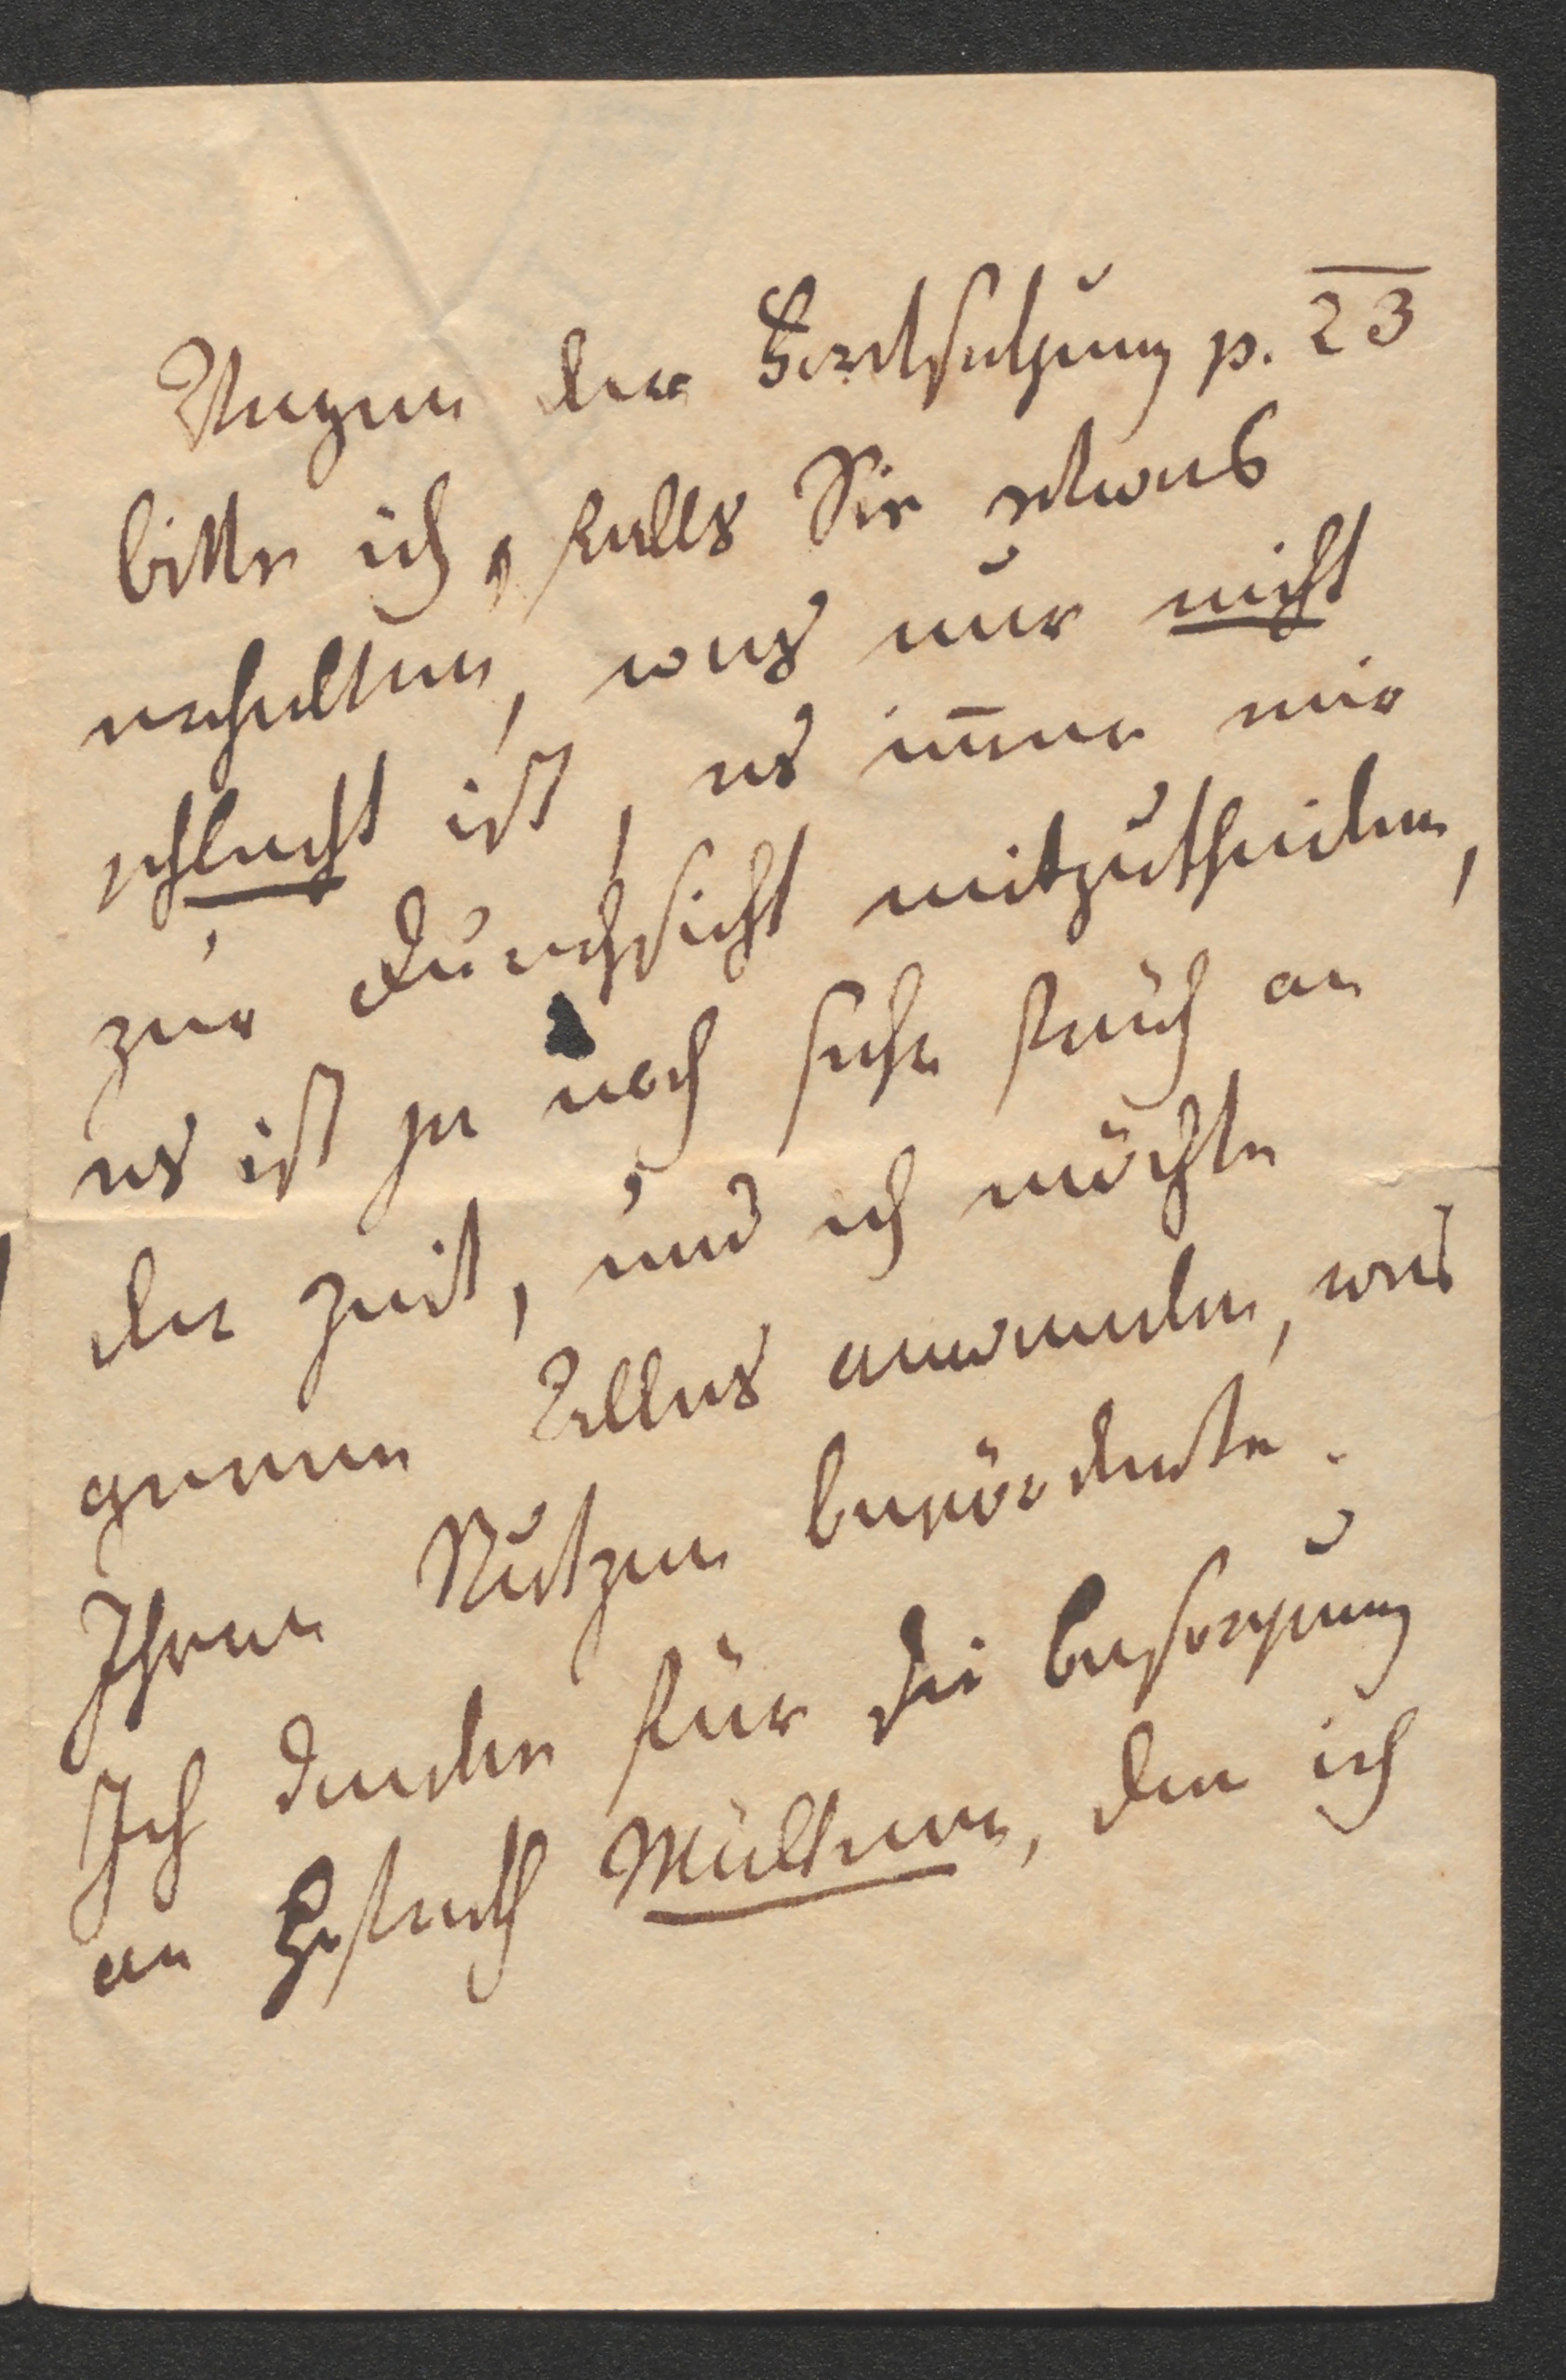 Wegen der Fortsetzung p. 23
bitte ich, falls Sie etwas
erhalten, was nur nicht
schlecht ist, es immer mir
zur Durchsicht mitzutheilen,
es ist ja noch sehr früh an
der Zeit, und ich möchte
gerne Alles anwenden, was
Ihren Nutzen beförderte.
Ich danke für die Besorgung
an Hofrath Müllner, den ich